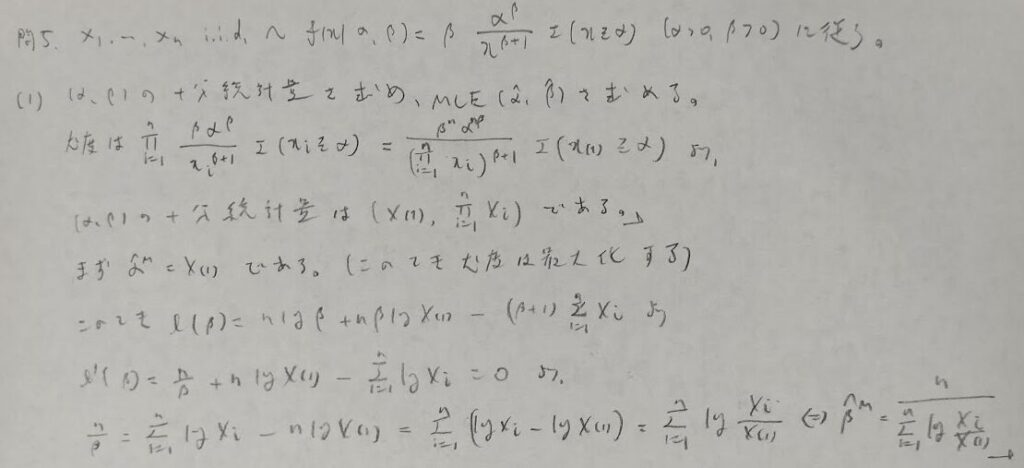 問5. X₁, …, Xₙ i.i.d. ~ f(x|α, β) = β α^β / x^{β+1} I(x ≧ α) (α>0, β>0) に従う。
(1) (α, β) の十分統計量を求め、MLE (α̂, β̂) を求める。
尤度は ∏_{i=1}^{n} βα^β / x_i^{β+1} I(x_i ≧ α) = β^n α^{nβ} / (∏_{i=1}^{n} x_i)^{β+1} I(x_{(1)} ≧ α) より、
(α, β) の十分統計量は (X_{(1)}, ∏_{i=1}^{n} X_i) である。
まず α̂^M = X_{(1)} である。(このとき尤度は最大化する)
このとき l(β) = n log β + nβ log X_{(1)} − (β+1) Σ_{i=1}^{n} X_i より
l'(β) = n/β + n log X_{(1)} − Σ_{i=1}^{n} log X_i = 0 より、
n/β = Σ_{i=1}^{n} log X_i − n log X_{(1)} = Σ_{i=1}^{n} (log X_i − log X_{(1)}) = Σ_{i=1}^{n} log X_i/X_{(1)} ⇔ β̂^M = n / Σ_{i=1}^{n} log X_i/X_{(1)}